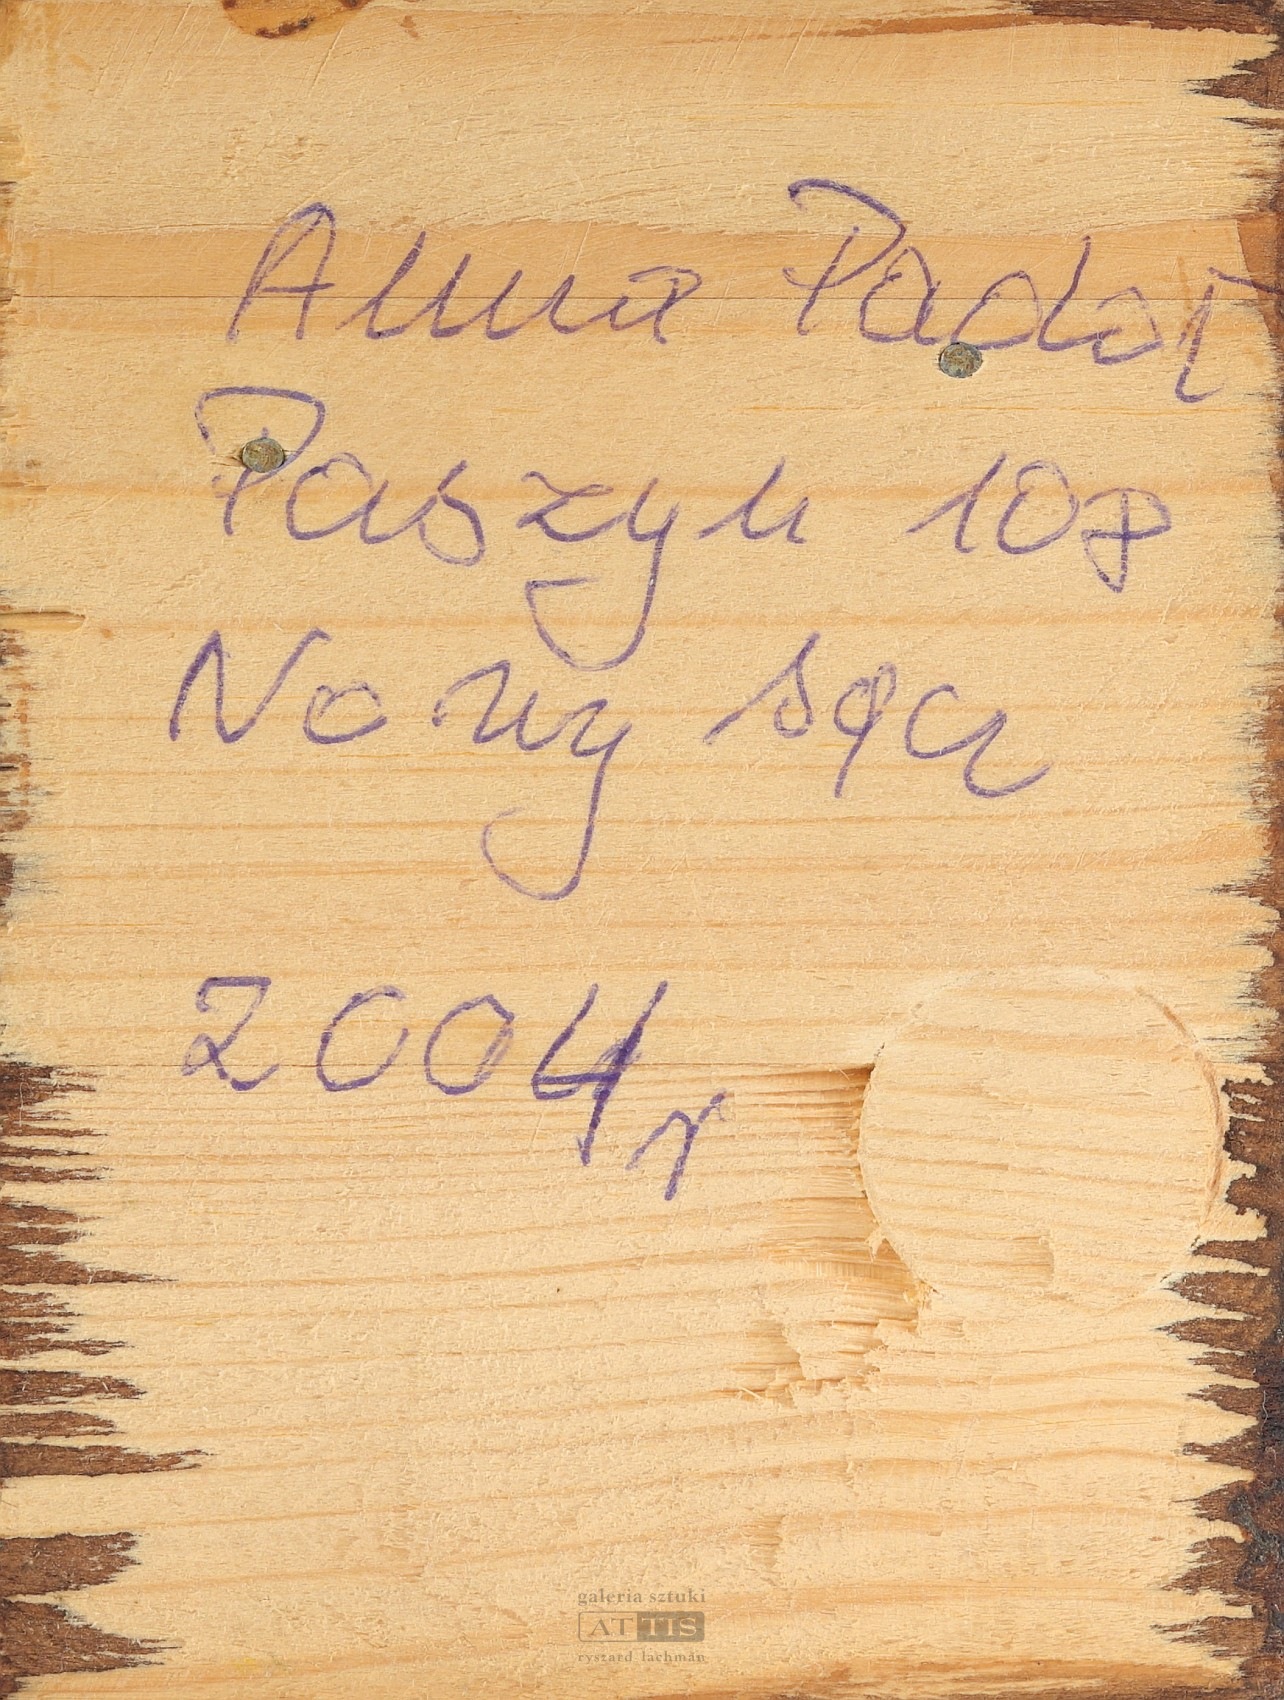 Anna
Paszyn 108
Nowy Sącz
2004 r
galeria sztuki
ATTIS
ryszard lachman